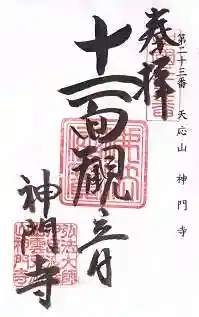 奉拝
第二十三番 天応山 神門寺
十一面観音
神門寺
弘法大師